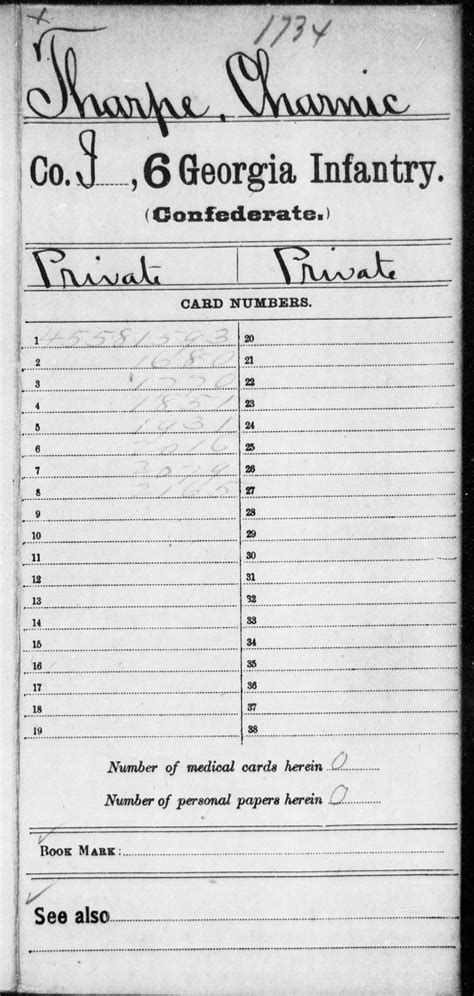 1734
Tharpe, Charnic
Co. I, 6 Georgia Infantry.
(Confederate.)
Private | Private
CARD NUMBERS.
1 45581593 20
2 1680 21
3 1770 22
4 1851 23
5 1931 24
6 2016 25
7 26
8 2165 27
9 28
10 29
11 30
12 31
13 32
14 33
15 34
16 35
17 36
18 37
19 38
Number of medical cards herein 0
Number of personal papers herein 0
BOOK MARK:
See also